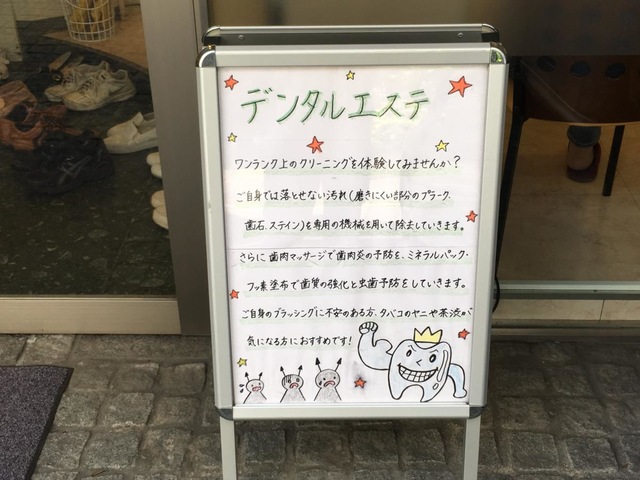 デンタルエステ
ワンランク上のクリーニングを体験してみませんか?
ご自身では落とせない汚れ(磨きにくい部分のプラーク、
歯石、ステイン)を専用の機械を用いて除去していきます。
さらに歯肉マッサージで歯肉炎の予防を、ミネラルパック・
フッ素塗布で歯質の強化と虫歯予防をしていきます。
ご自身のブラッシングに不安のある方、タバコのヤニや茶渋が
気になる方におすすめです!